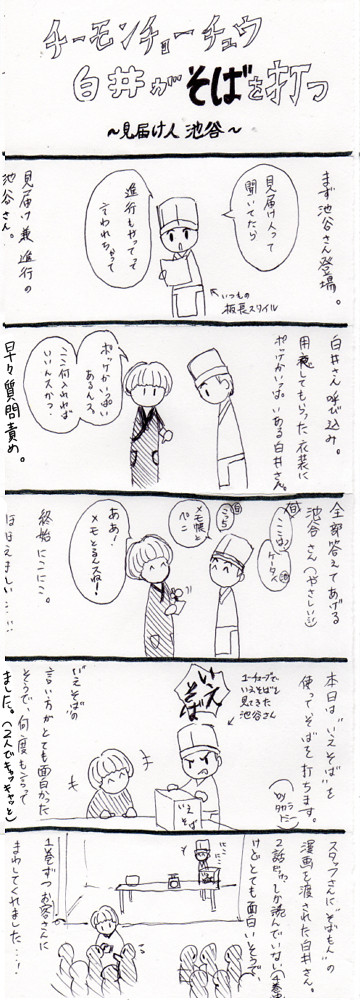 チーモンチョーチュウ
白井がそばを打つ
～見届け人 池谷～
まず池谷さん登場。
見届け人って
聞いてたら
進行もやってって
言われちゃって
いつもの
板長スタイル
見届け兼進行の
池谷さん。
白井さん呼び込み。
用意してもらった衣装に
ポッケがいっぱいある白井さん。
ポッケがいっぱい
あるんス。
ここ何入れれば
いいんスかっ
早々質問責め。
全部答えてあげる
池谷さん(やさしい!!)
ここは?
ケータイ
こっちは
メモ帳と
ペン
ああ!
メモとるんスね!
終始にこにこ。
ほほえましい……!!
本日は"いえそば"を
使ってそばを打ちます。
(byタカラトミー)
ユーチューブで
いえそばを
見てきた
池谷さん
いえそば
いえ
そば
いえそばの
言い方がとても面白かった
そうで、何度も言って
ました。(2人でキャッキャッと)
スタッフさんに『そばもん』の
漫画を渡された白井さん。
2話しか読んでいない
けどとても面白いそうで、
1巻ずつお客さんに
まわしてくれました…!
にこ
にこ